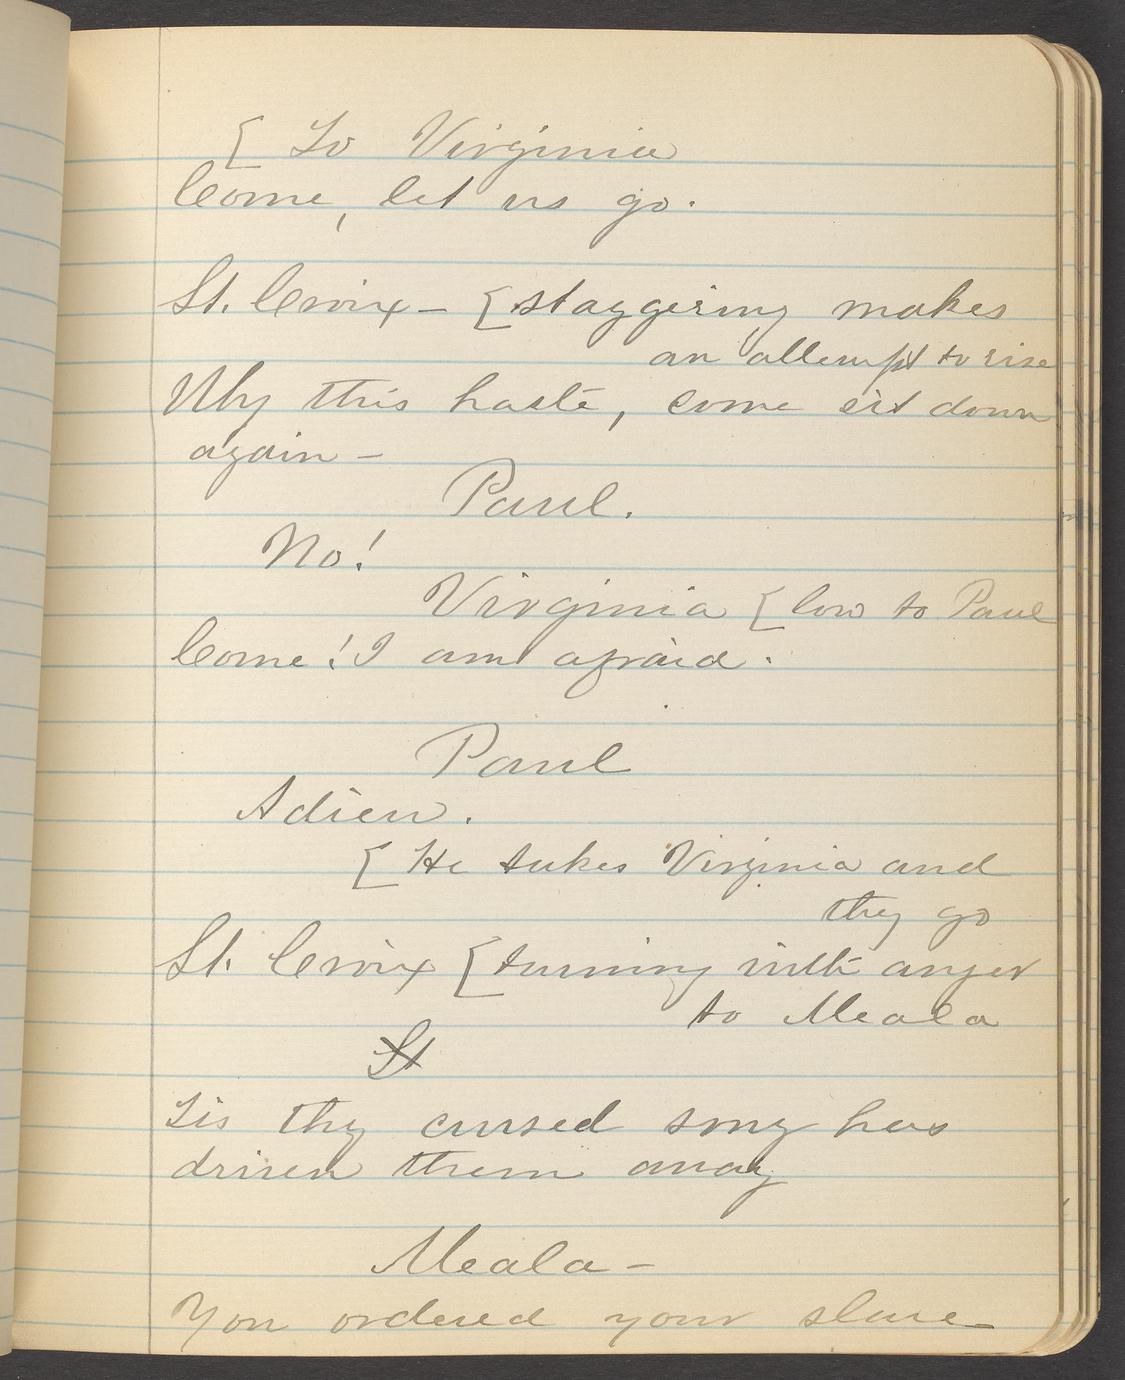 [ To Virginia
Come, let us go.
St. Croix - [staggering makes
an attempt to rise
Why this haste, come sit down
again -
Paul.
No!
Virginia [low to Paul
Come! I am afraid.
Paul
Adieu.
[ He takes Virginia and
they go
St. Croix [turning with anger
to Meala
St
Tis thy cursed song has
driven them away
Meala -
You ordered your slave